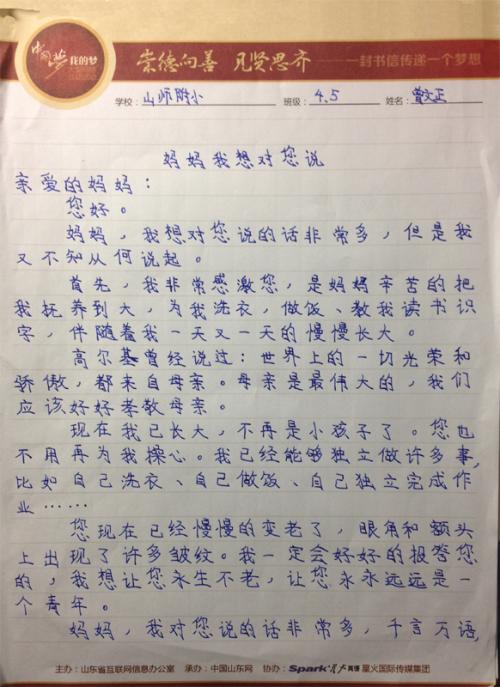 中国梦 我的梦
崇德向善 见贤思齐 ——一封书信传递一个梦想
学校：山师附小 班级：4.5 姓名：曾文正
妈妈我想对您说
亲爱的妈妈：
您好。
妈妈，我想对您说的话非常多，但是我
又不知从何说起。
首先，我非常感激您，是妈妈辛苦的把
我抚养到大，为我洗衣，做饭、教我读书识
字，伴随着我一天又一天的慢慢长大。
高尔基曾经说过：世界上的一切光荣和
骄傲，都来自母亲。母亲是最伟大的，我们
应该好好孝敬母亲。
现在我已长大，不再是小孩子了。您也
不用再为我操心。我已经能够独立做许多事，
比如自己洗衣、自己做饭、自己独立完成作
业……
您现在已经慢慢的变老了，眼角和额头
上出现了许多皱纹。我一定会好好的报答您
的，我想让您永生不老，让您永永远远是一
个青年。
妈妈，我对您说的话非常多，千言万语，
主办：山东省互联网信息办公室 承办：中国山东网 协办：Spark 星火英语 星火国际传媒集团